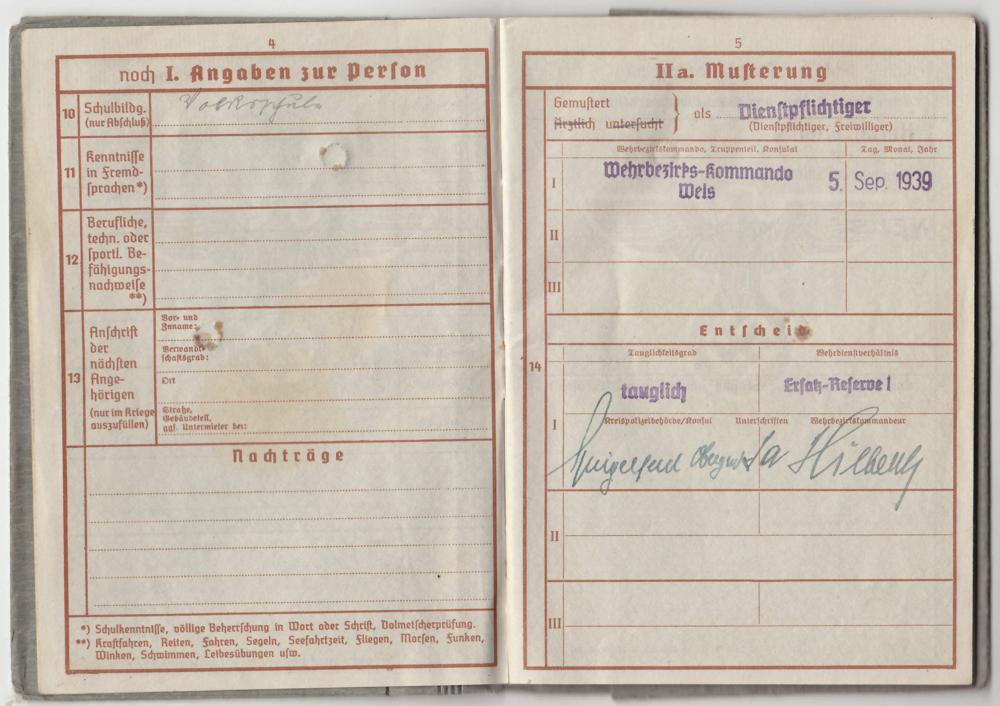 4
noch I. Angaben zur Person
10 Schulbildg.
(nur Abschluß)
Volksschule
11 Kenntnisse
in Fremd-
sprachen*)
12 Berufliche,
techn. oder
sportl. Be-
fähigungs-
nachweise
**)
13 Anschrift
der
nächsten
Ange-
hörigen
(nur im Kriege
auszufüllen)
Vor- und
Zuname:
Verwandt-
schaftsgrad:
Ort
Straße,
Gebäudeteil,
ggf. Untermieter bei:
Nachträge
*) Schulkenntnisse, völlige Beherrschung in Wort oder Schrift, Dolmetscherprüfung.
**) Kraftfahren, Reiten, Fahren, Segeln, Seefahrtzeit, Fliegen, Morsen, Funken,
Winken, Schwimmen, Leibesübungen usw.
5
IIa. Musterung
Gemustert
ärztlich untersucht
als Dienstpflichtiger
(Dienstpflichtiger, Freiwilliger)
Wehrbezirkskommando, Truppenteil, Konsulat Tag, Monat, Jahr
I Wehrbezirks-Kommando 5. Sep. 1939
Wels
II
III
Entscheid
14
Tauglichkeitsgrad Wehrdienstverhältnis
tauglich Ersatz-Reserve I
I Kreispolizeibehörde/Konsul Unterschriften Wehrbezirkskommandeur
II
III